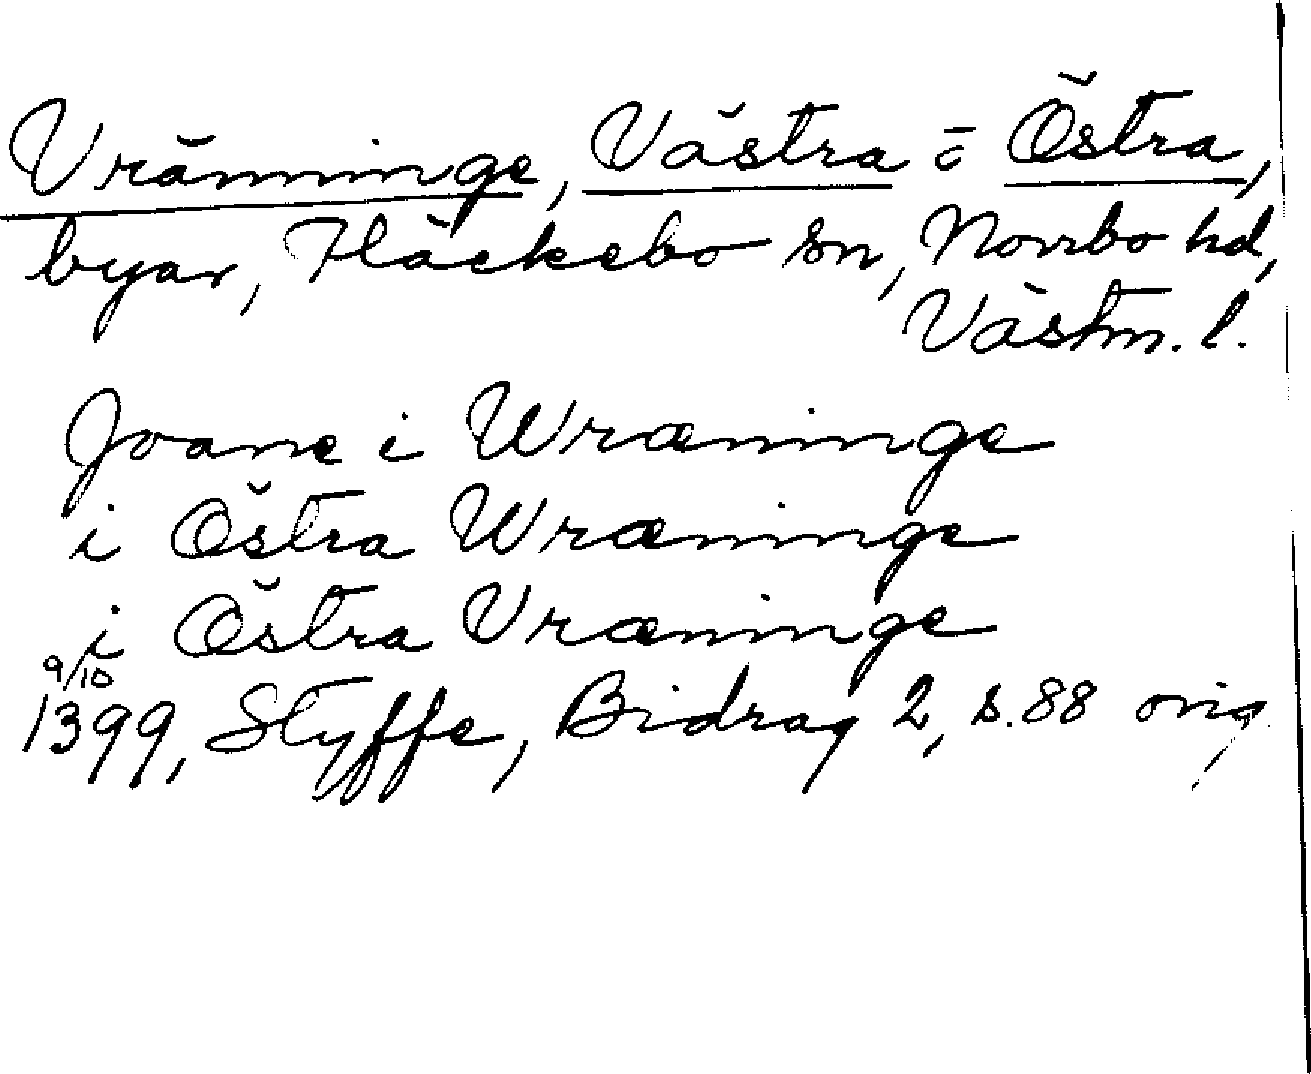 Vränninge, Västra o Östra,
byar, Fläckebo sn, Norrbo hd,
Västm. l.
Joane i Wræninge
i Östra Wræninge
i Östra Vræninge
9/10
1399, Styffe, Bidrag 2, s. 88 orig.